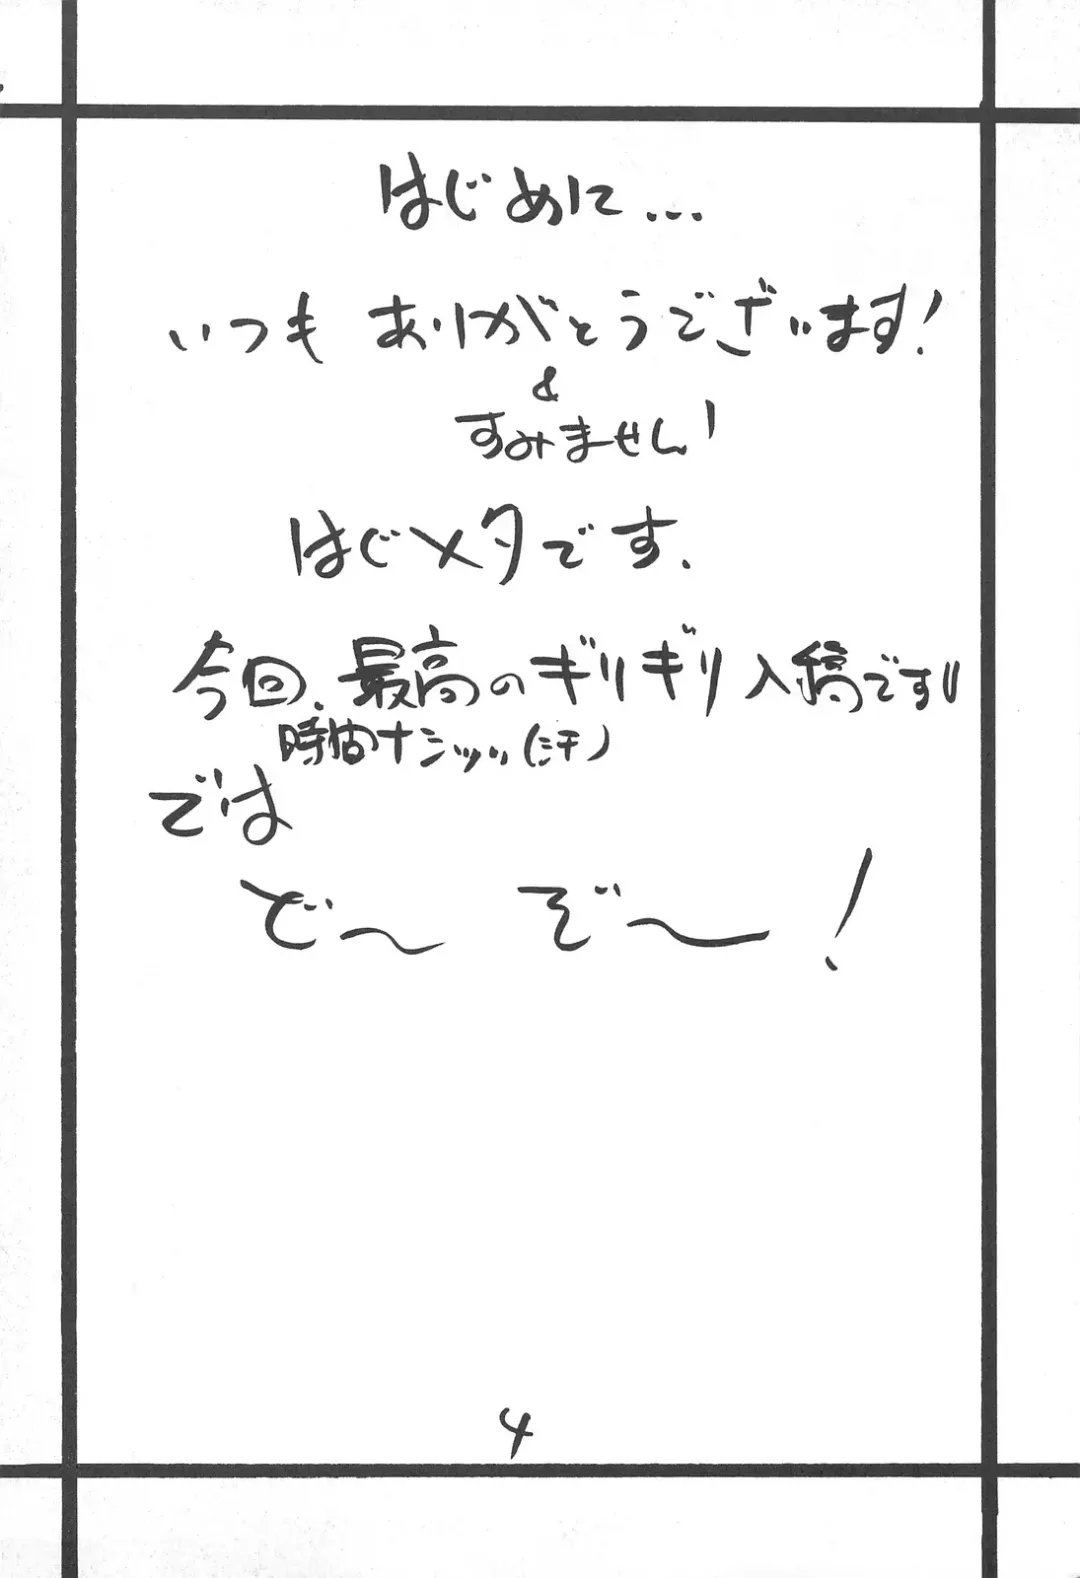 はじめに...
いつも ありがとうございます!
&
すみません!
はじメタです.
今回、最高のギリギリ入稿です!!
時間ナシッッ(汗)
では
ど〜 ぞ〜!
4